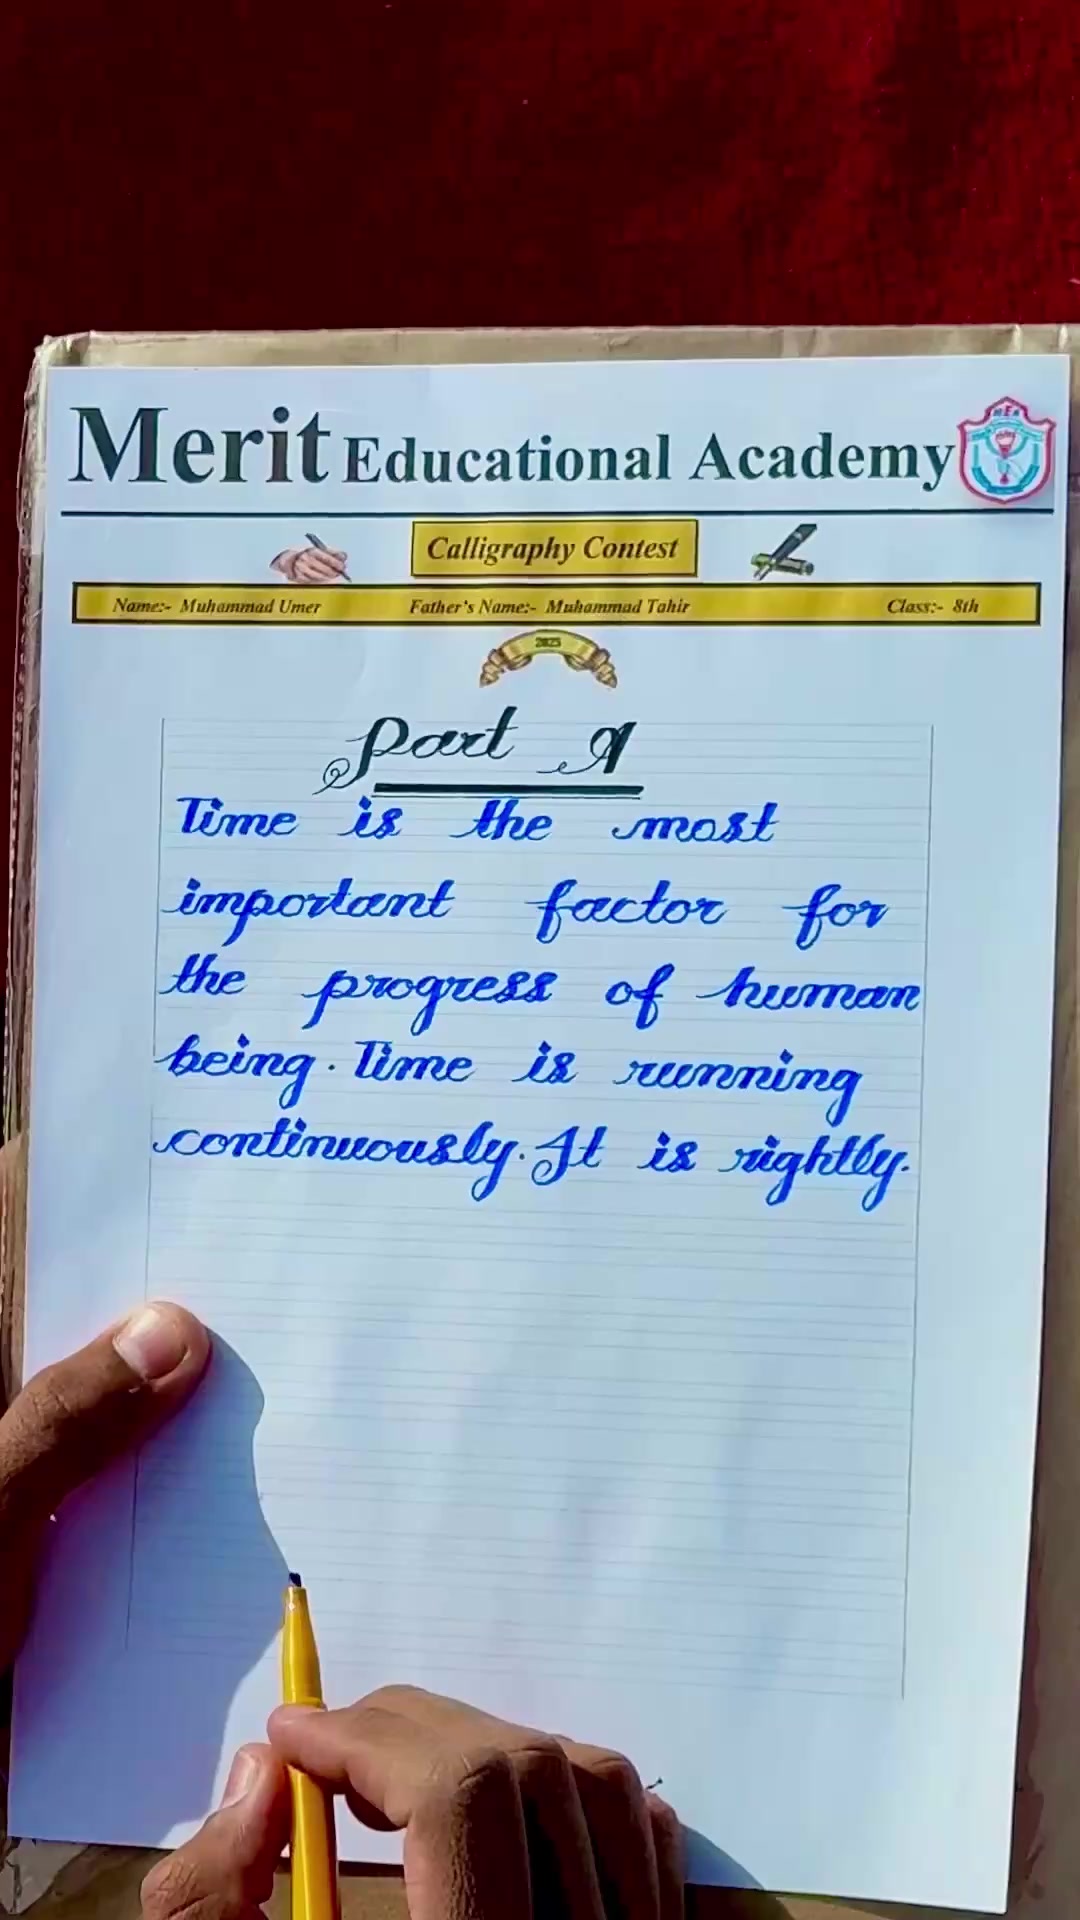 Merit Educational Academy
Calligraphy Contest
Name:- Muhammad Umer Father's Name:- Muhammad Tahir Class:- 8th
2025
Part A
Time is the most
important factor for
the progress of human
being. Time is running
continuously. It is rightly.